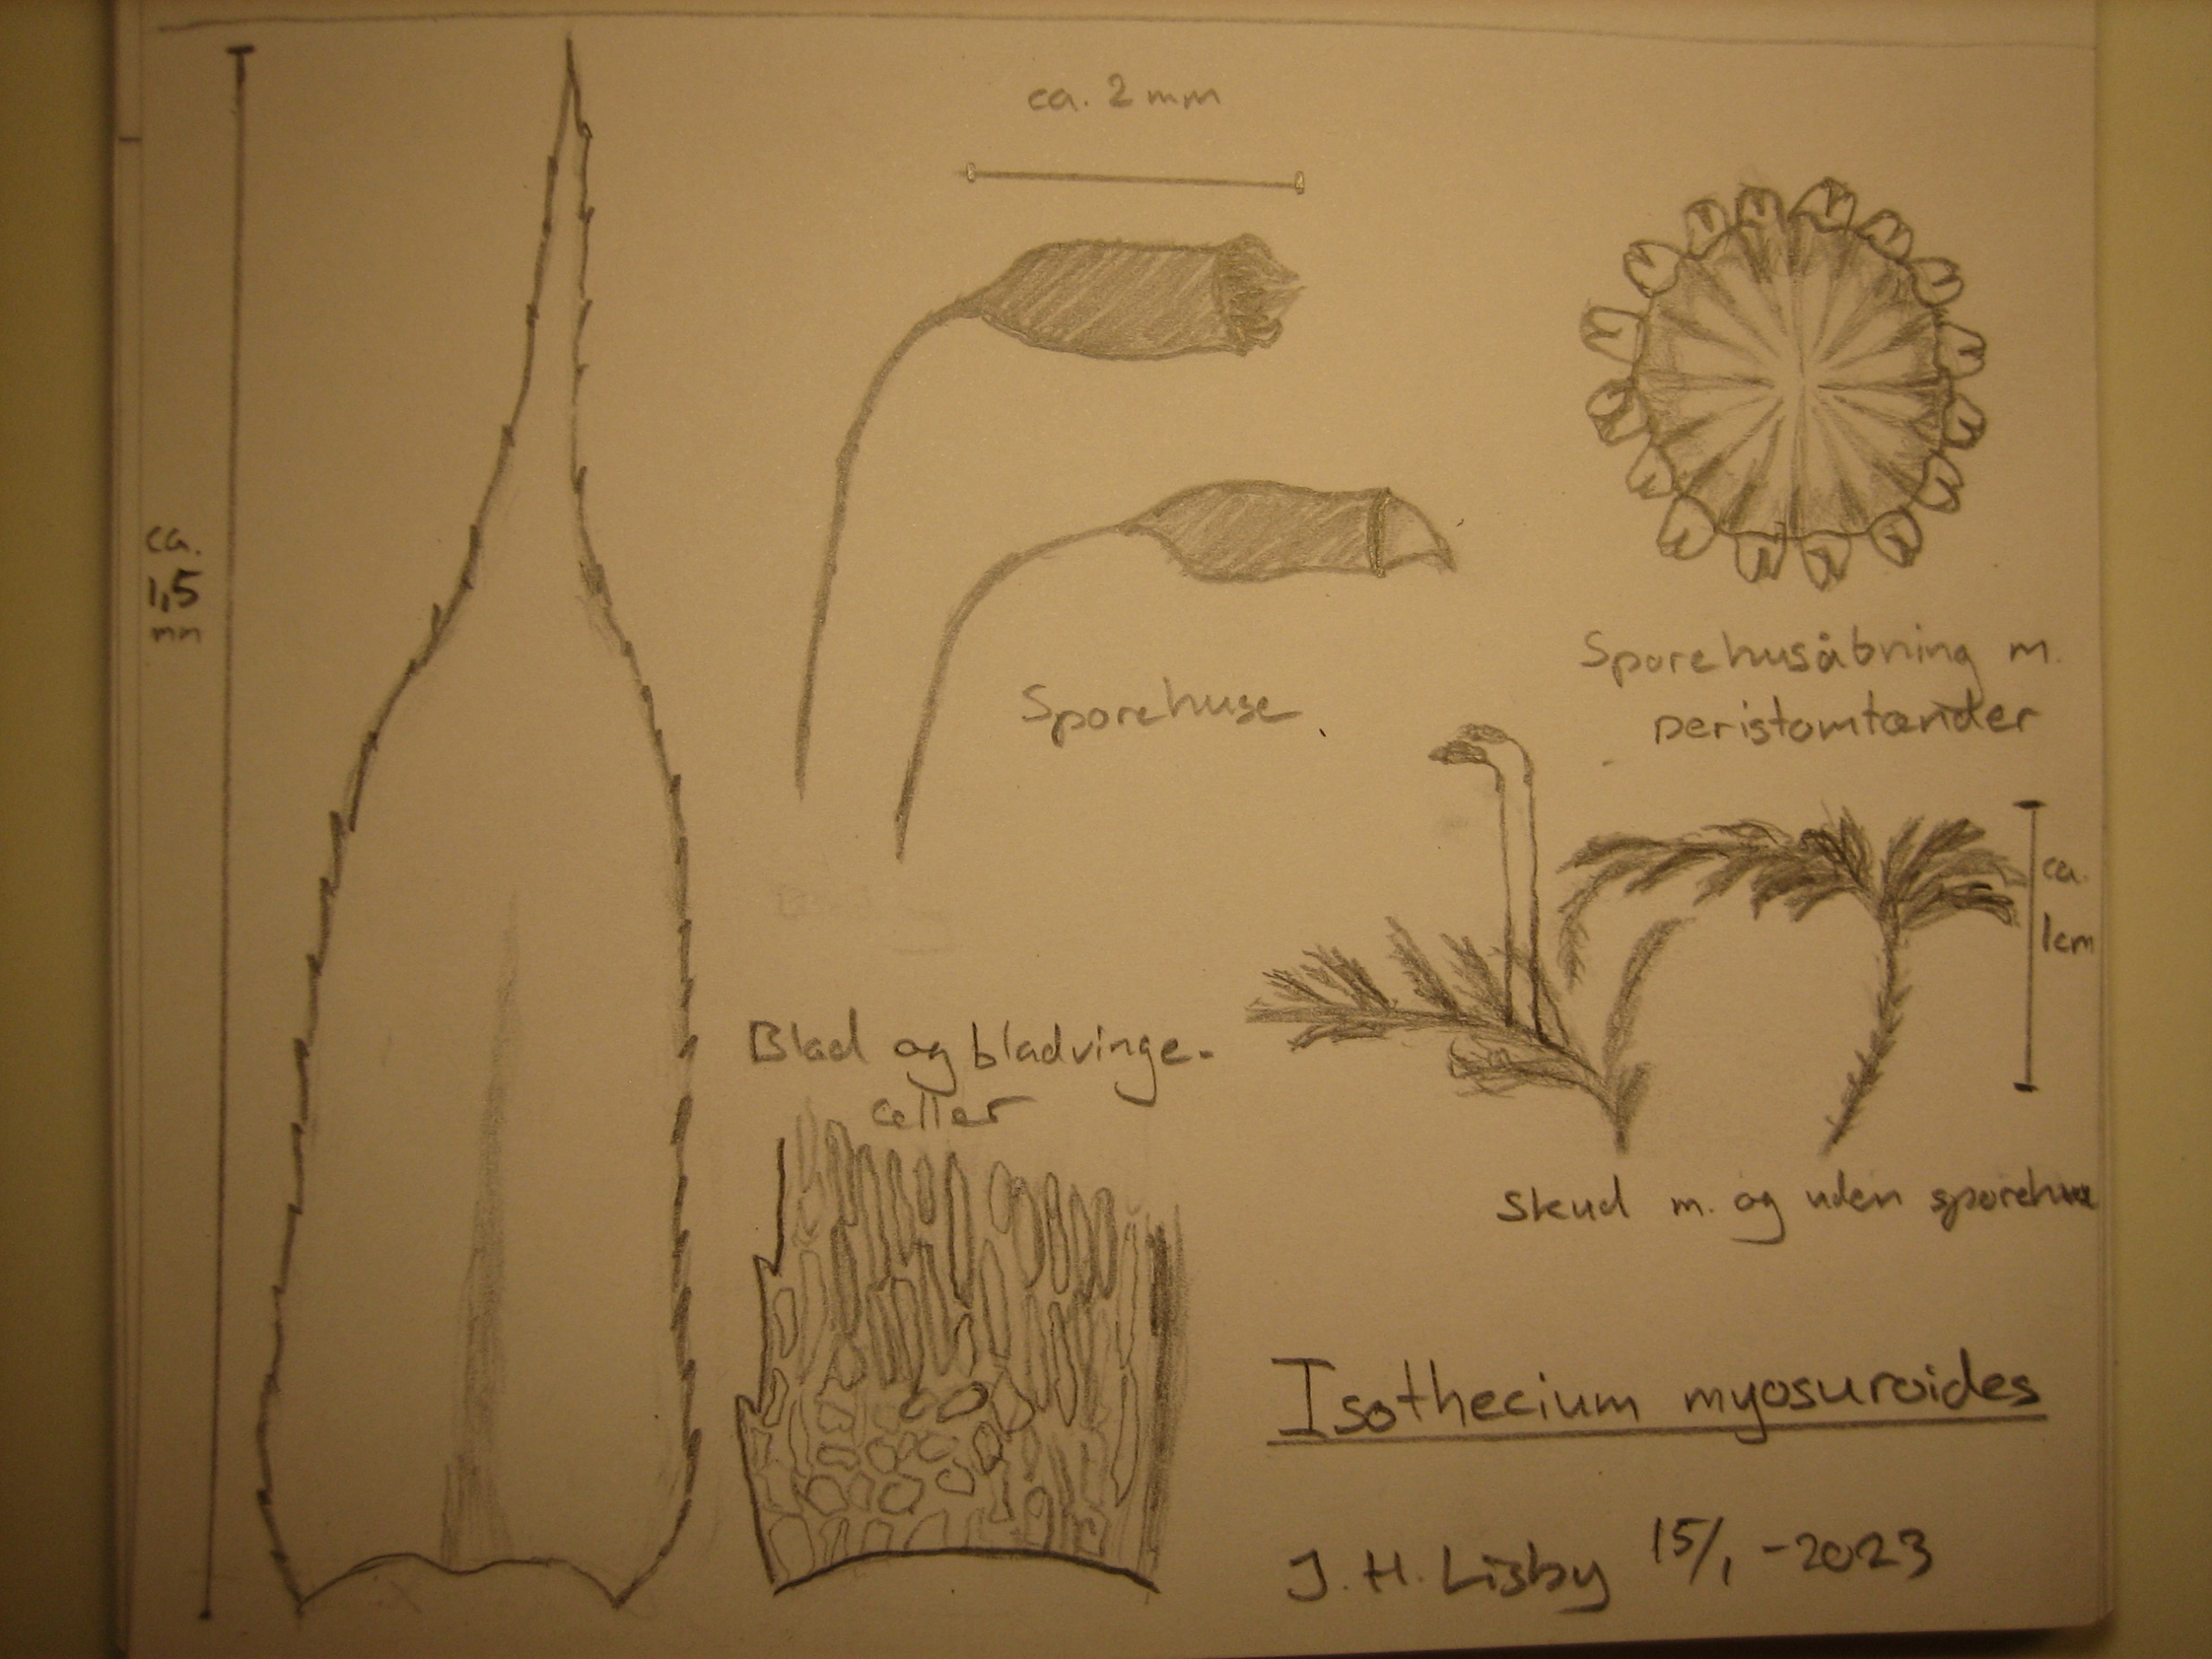 ca. 2 mm
ca.
1,5
mm
Sporehuse
Sporehusåbning m.
peristomtænder
ca.
1cm
Blad og bladvinge-
celler
Skud m. og uden sporehuse
Isothecium myosuroides
J. H. Lisby 15/1 -2023